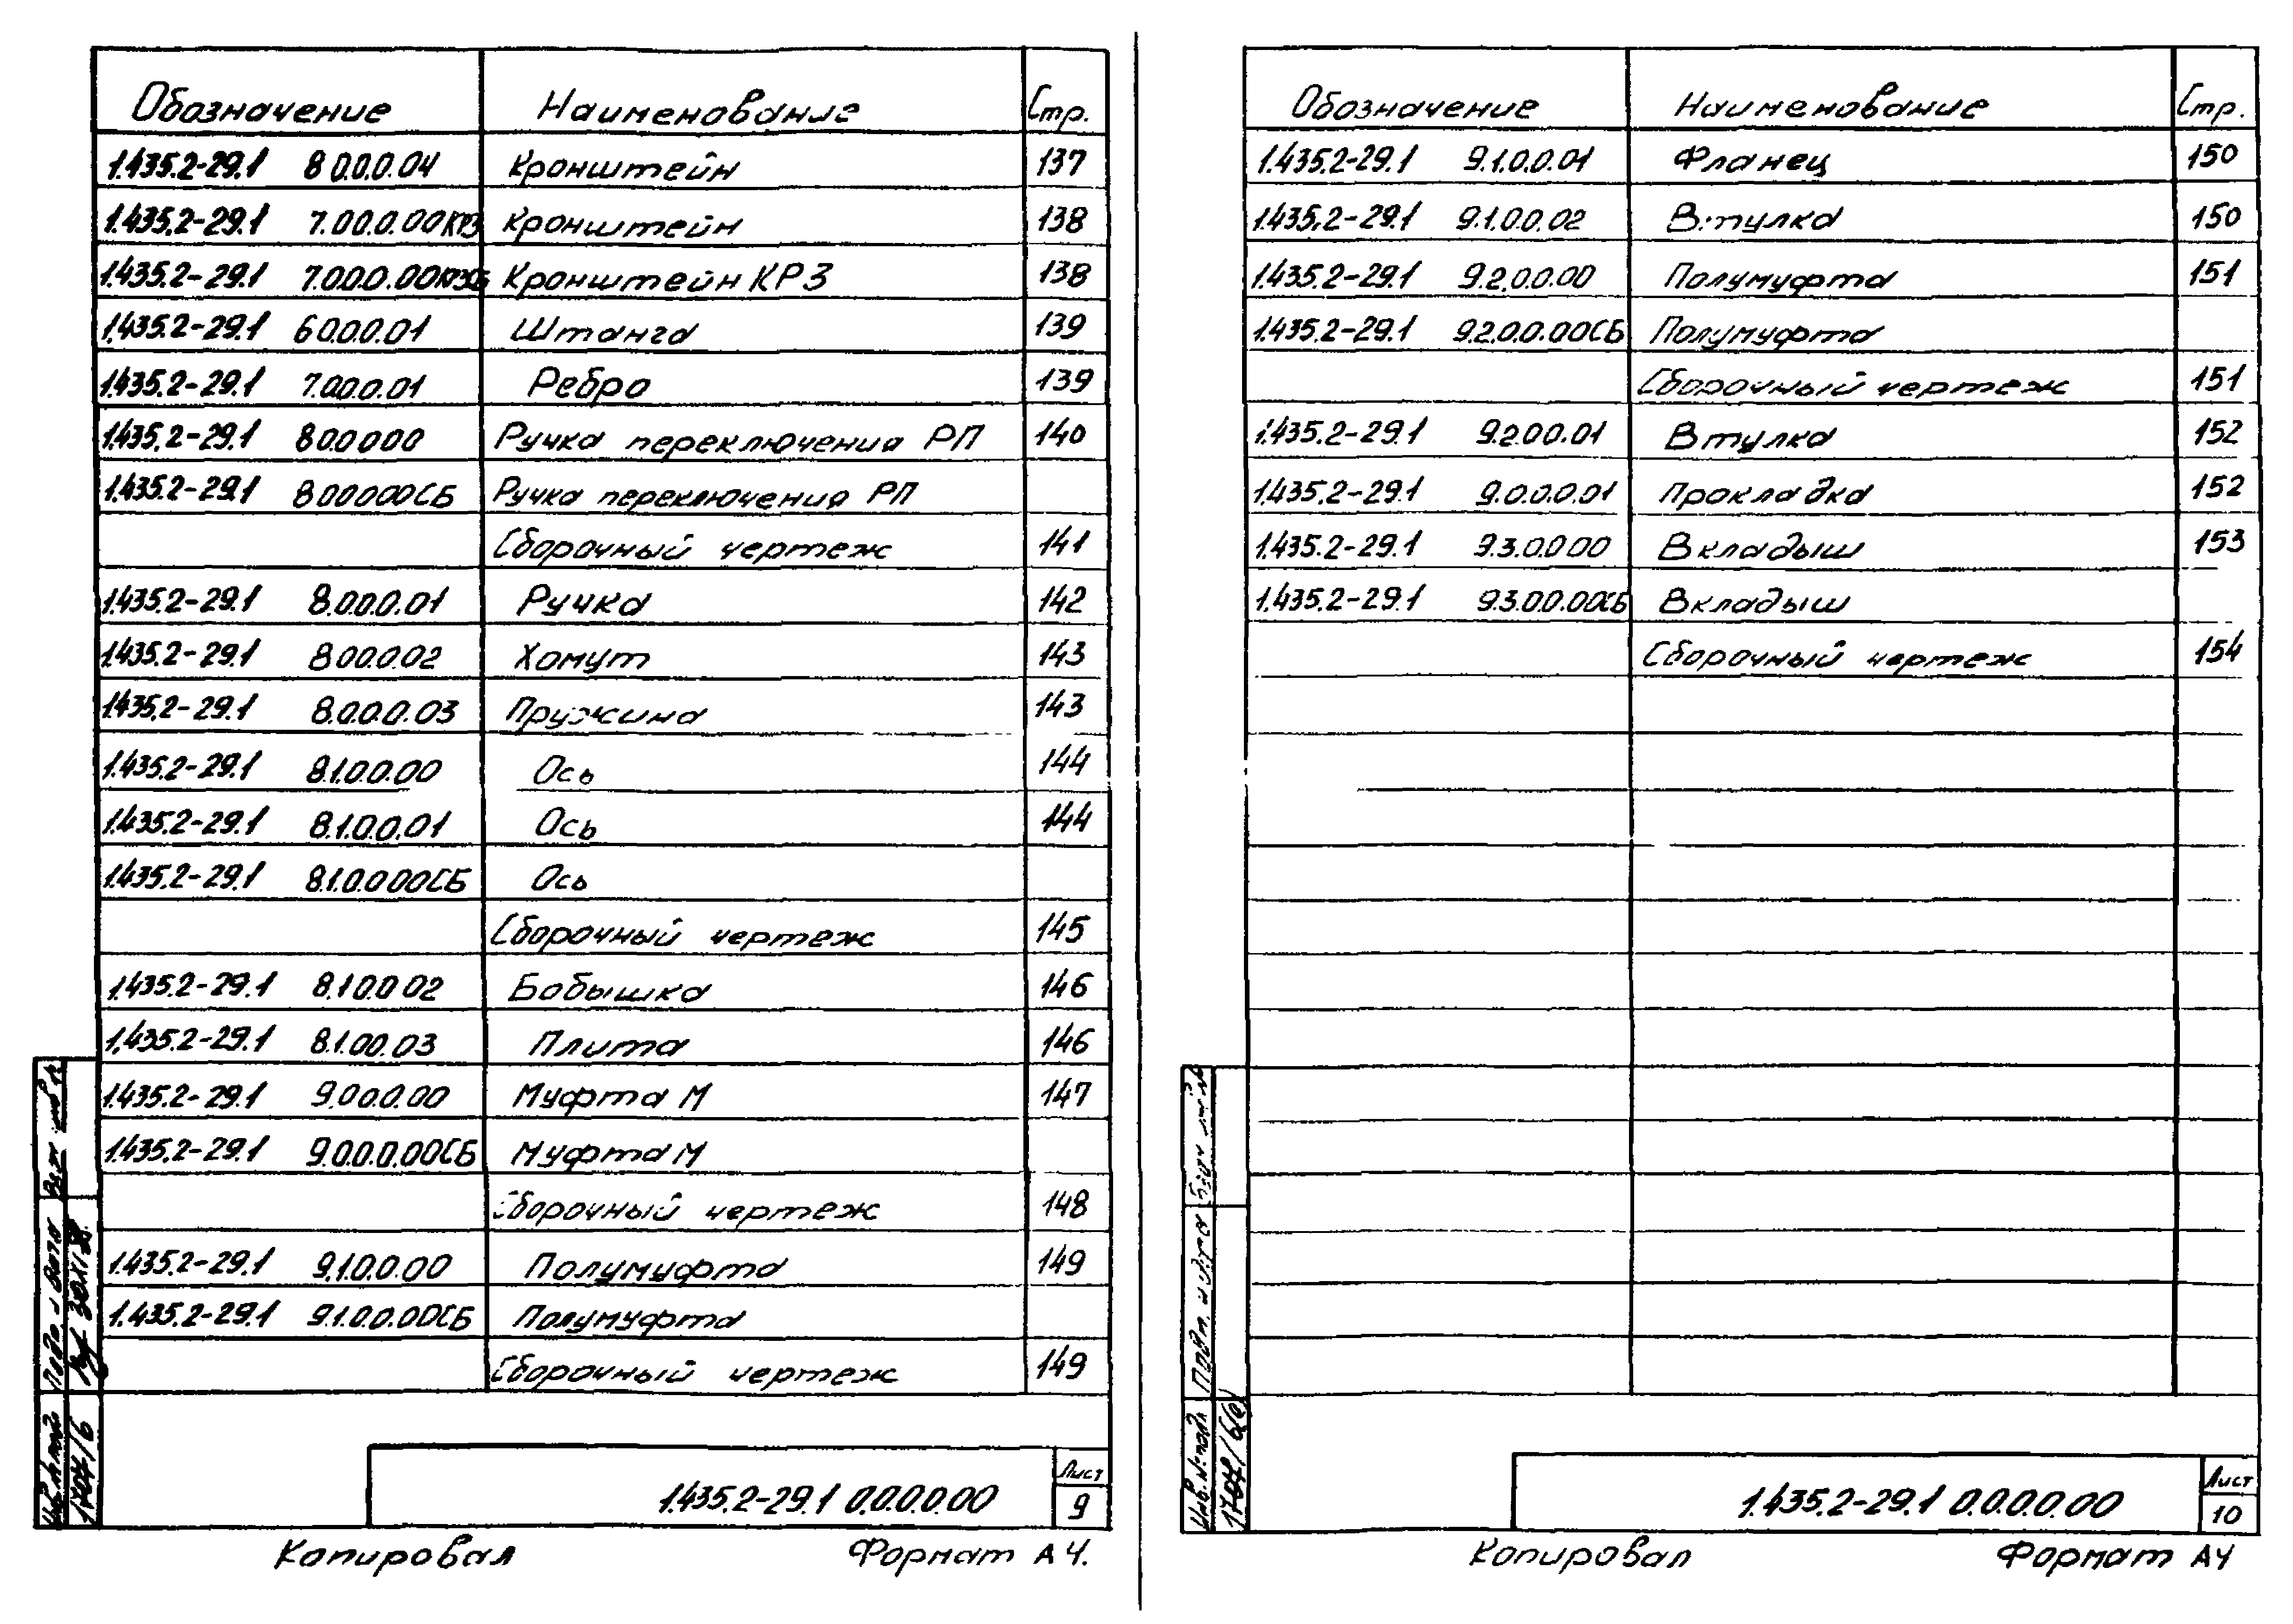 Обозначение Наименование Стр.
1.435.2-29.1 8.0.0.0.04 Кронштейн 137
1.435.2-29.1 7.0.0.0.00КРЗ Кронштейн 138
1.435.2-29.1 7.0.0.0.00КРЗСБ Кронштейн КРЗ 138
1.435.2-29.1 6.0.0.0.01 Штанга 139
1.435.2-29.1 7.0.0.0.01 Ребро 139
1.435.2-29.1 8.0.0.0.00 Ручка переключения РП 140
1.435.2-29.1 8.0.0.0.00СБ Ручка переключения РП
Сборочный чертеж 141
1.435.2-29.1 8.0.0.0.01 Ручка 142
1.435.2-29.1 8.0.0.0.02 Хомут 143
1.435.2-29.1 8.0.0.0.03 Пружина 143
1.435.2-29.1 8.1.0.0.00 Ось 144
1.435.2-29.1 8.1.0.0.01 Ось 144
1.435.2-29.1 8.1.0.0.00СБ Ось
Сборочный чертеж 145
1.435.2-29.1 8.1.0.0.02 Бобышка 146
1.435.2-29.1 8.1.0.0.03 Плита 146
1.435.2-29.1 9.0.0.0.00 Муфта М 147
1.435.2-29.1 9.0.0.0.00СБ Муфта М
Сборочный чертеж 148
1.435.2-29.1 9.1.0.0.00 Полумуфта 149
1.435.2-29.1 9.1.0.0.00СБ Полумуфта
Сборочный чертеж 149
Инв.№ подл. Подп. и дата
17047/6
1.435.2-29.1 0.0.0.0.00
Лист
9
Копировал Формат А4.
Обозначение Наименование Стр.
1.435.2-29.1 9.1.0.0.01 Фланец 150
1.435.2-29.1 9.1.0.0.02 Втулка 150
1.435.2-29.1 9.2.0.0.00 Полумуфта 151
1.435.2-29.1 9.2.0.0.00СБ Полумуфта
Сборочный чертеж 151
1.435.2-29.1 9.2.0.0.01 Втулка 152
1.435.2-29.1 9.0.0.0.01 Прокладка 152
1.435.2-29.1 9.3.0.0.00 Вкладыш 153
1.435.2-29.1 9.3.0.0.00СБ Вкладыш
Сборочный чертеж 154
Инв.№ подл. Подп. и дата
1.435.2-29.1 0.0.0.0.00
Лист
10
Копировал Формат А4